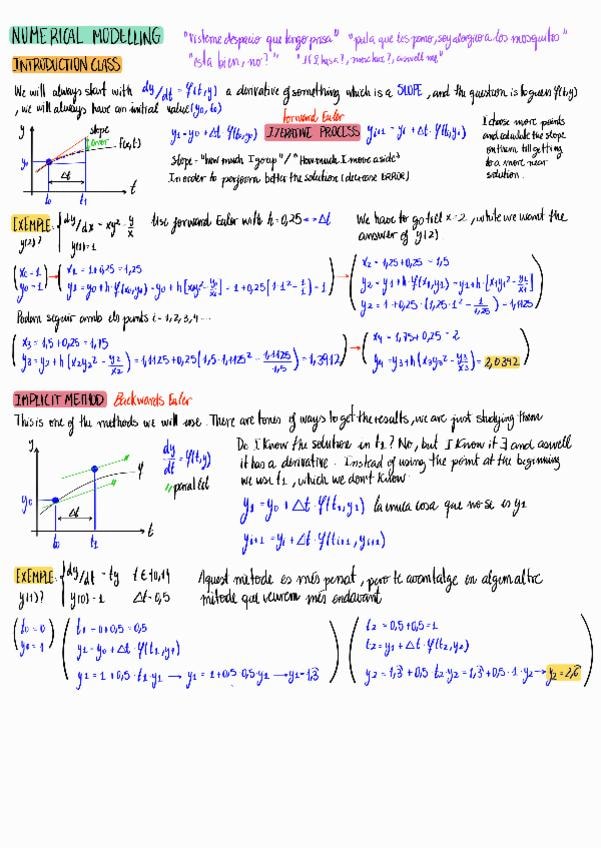 NUMERICAL MODELLING
"vísteme despacio que tengo prisa"
INTRODUCTION CLASS
"està bien, no?"
We will always start with dy/dt = φ(t,y) a derivative of something which is a SLOPE, and the question is to guess φ(t,y)
, we will always have an initial value (y₀, t₀)
Forward Euler
y₁ = y₀ + Δt · φ(t₀,y₀) ITERATIVE PROCESS yᵢ₊₁ = yᵢ + Δt · φ(tᵢ,yᵢ)
I choose more points
and calculate the slope
on them till getting
to a more near
solution.
y
slope
error
F(x,t)
y₀
Δt
t₀ t₁ t
Slope = "how much I go up" / "How much I move aside"
In order to perform better the solution (decrease ERROR)
EXEMPLE: dy/dx = xy² - y/x Use forward Euler with h = 0,25 ↔ Δt
y(2)? y(1) = 1
We have to go till x = 2, while we want the
answer of y(2)
x₀ = 1
y₀ = 1
x₁ = 1 + 0,25 = 1,25
y₁ = y₀ + h · φ(x₀,y₀) = y₀ + h [x₀y₀² - y₀/x₀] = 1 + 0,25 (1·1² - 1/1) = 1
x₂ = 1,25 + 0,25 = 1,5
y₂ = y₁ + h · φ(x₁,y₁) = y₁ + h · [x₁y₁² - y₁/x₁]
y₂ = 1 + 0,25 · (1,25 · 1² - 1/1,25) = 1,1125
Podem seguir amb els punts i = 1, 2, 3, 4 ...
x₃ = 1,5 + 0,25 = 1,75
y₃ = y₂ + h (x₂y₂² - y₂/x₂) = 1,1125 + 0,25 (1,5 · 1,1125² - 1,1125/1,5) = 1,3912
x₄ = 1,75 + 0,25 = 2
y₄ = y₃ + h (x₃y₃² - y₃/x₃) = 2,0392
IMPLICIT METHOD Backwards Euler
This is one of the methods we will use. There are tones of ways to get the results, we are just studying them
y
dy/dt = φ(t,y)
// paral·lel
φ
y₀
Δt
t₀ t₁ t
Do I Know the solution in t₁? No, but I Know it ∃ and aswell
it has a derivative. Instead of using the point at the beginning
we use t₁, which we don't Know.
y₁ = y₀ + Δt · φ(t₁,y₁) la única cosa que no se es y₁
yᵢ₊₁ = yᵢ + Δt · φ(tᵢ₊₁, yᵢ₊₁)
EXEMPLE: dy/dt = ty
y(1)? y(0) = 1 Δt = 0,5
Aquest mètode es més penat, però te avantatge en algem altre
mètode que veurem més endavant
t₀ = 0
y₀ = 1
t₁ = 0 + 0,5 = 0,5
y₁ = y₀ + Δt · φ(t₁,y₁)
y₁ = 1 + 0,5 · t₁ · y₁ → y₁ = 1 + 0,5 · 0,5 · y₁ → y₁ = 1,3̂
t₂ = 0,5 + 0,5 = 1
t₂ = y₁ + Δt · φ(t₂,y₂)
y₂ = 1,3̂ + 0,5 · t₂ · y₂ = 1,3̂ + 0,5 · 1 · y₂ → y₂ = 2,6̂